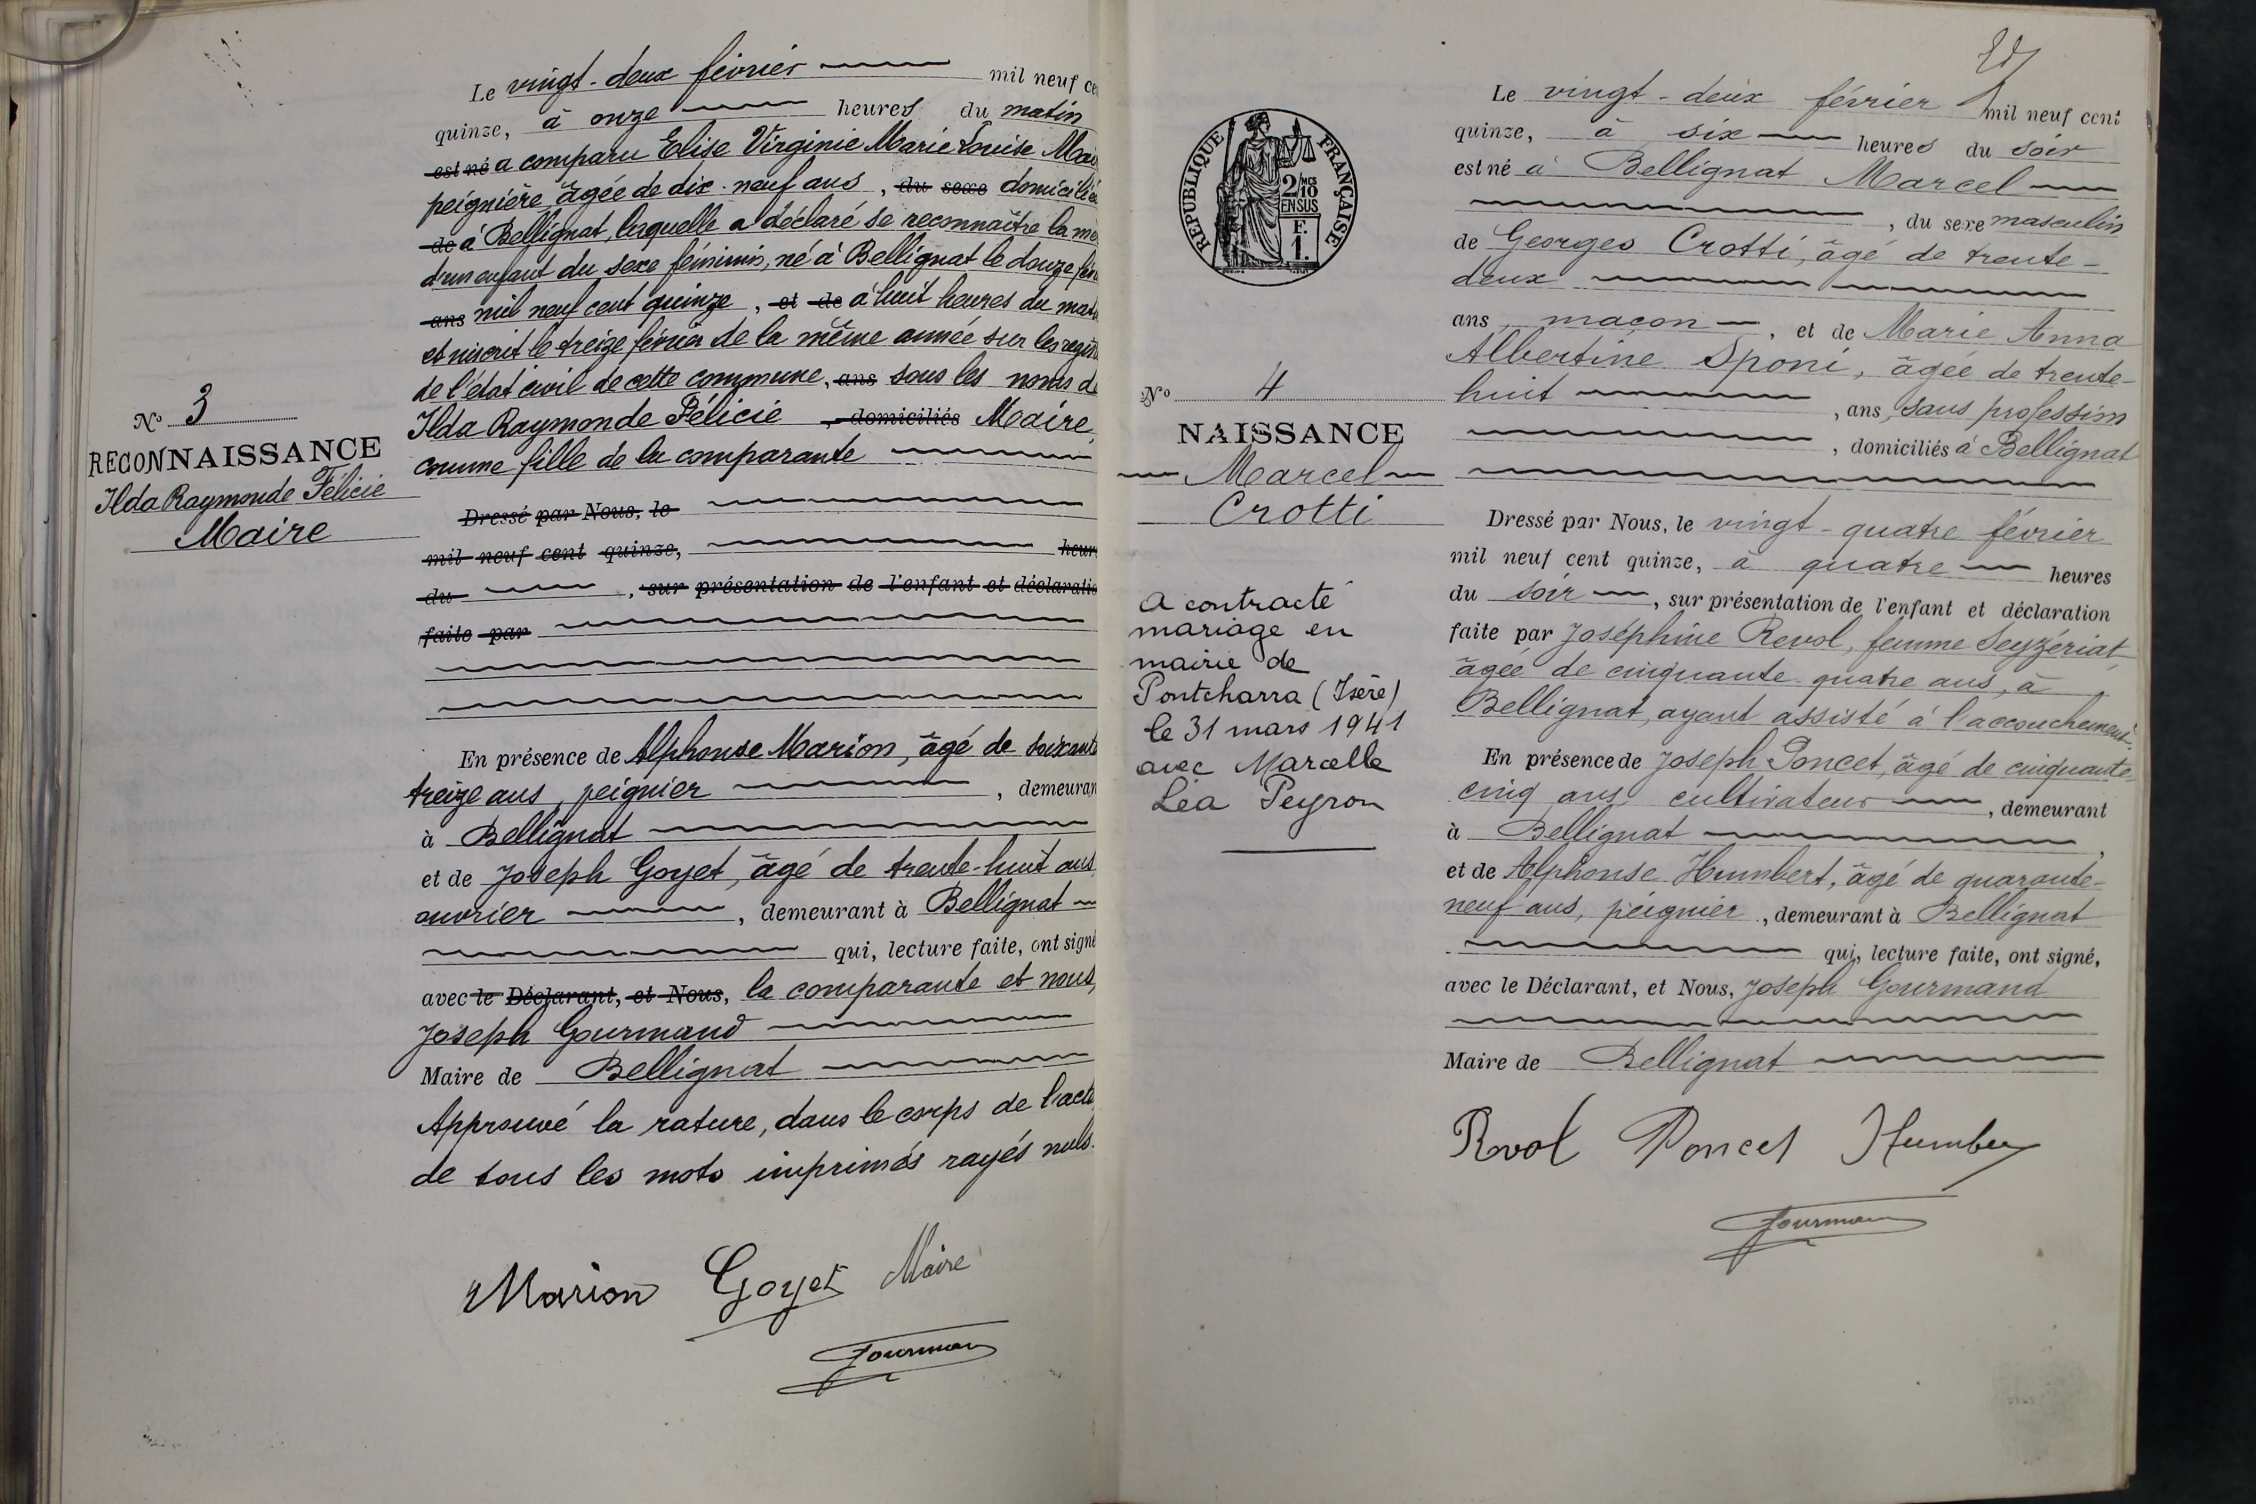 Le vingt-deux février mil neuf ce
quinze, à onze heures du matin
est né a comparu Elise Virginie Marie Louise Mai
peignière, âgée de dix-neuf ans, du sexe domiciliée
de à Bellignat, laquelle a déclaré se reconnaître la mè
d'un enfant du sexe féminin, né à Bellignat le douze fév
ans mil neuf cent quinze, et de à huit heures du mat
et inscrit le treize février de la même année sur les regist
de l'état civil de cette commune, ans sous les noms de
Ilda Raymonde Félicie, domiciliés Maire,
comme fille de la comparante
Dressé par Nous, le
mil neuf cent quinze, heur
du , sur présentation de l'enfant et déclaratio
faite par
En présence de Alphonse Marion, âgé de soixante
treize ans, peignier , demeuran
à Bellignat
et de Joseph Goyet, âgé de trente-huit ans
ouvrier , demeurant à Bellignat
qui, lecture faite, ont signé
avec le Déclarant, et Nous, la comparante et nous,
Joseph Gourmand
Maire de Bellignat
Approuvé la rature, dans le corps de l'acte
de tous les mots imprimés rayés nuls.
Marion Goyet Maire
Gourmand
N° 3
RECONNAISSANCE
Ilda Raymonde Félicie
Maire
RÉPUBLIQUE FRANÇAISE
2/10 MES
EN SUS
F.
1.
N° 4
NAISSANCE
Marcel
Crotti
A contracté
mariage en
mairie de
Pontcharra (Isère)
le 31 mars 1941
avec Marcelle
Léa Peyron
Le vingt-deux février mil neuf cent
quinze, à six heures du soir
est né à Bellignat Marcel
, du sexe masculin
de Georges Crotti, âgé de trente-
deux
ans, maçon , et de Marie Anna
Albertine Sponi, âgée de trente-
huit , ans, sans profession
, domiciliés à Bellignat
Dressé par Nous, le vingt-quatre février
mil neuf cent quinze, à quatre heures
du soir , sur présentation de l'enfant et déclaration
faite par Joséphine Revol, femme Seyzériat,
âgée de cinquante-quatre ans, à
Bellignat, ayant assisté à l'accouchement.
En présence de Joseph Poncet, âgé de cinquante-
cinq ans cultivateur , demeurant
à Bellignat ,
et de Alphonse Humbert, âgé de quarante-
neuf ans, peignier , demeurant à Bellignat
qui, lecture faite, ont signé,
avec le Déclarant, et Nous, Joseph Gourmand
Maire de Bellignat
Rvol Poncet Humber
Gourmand